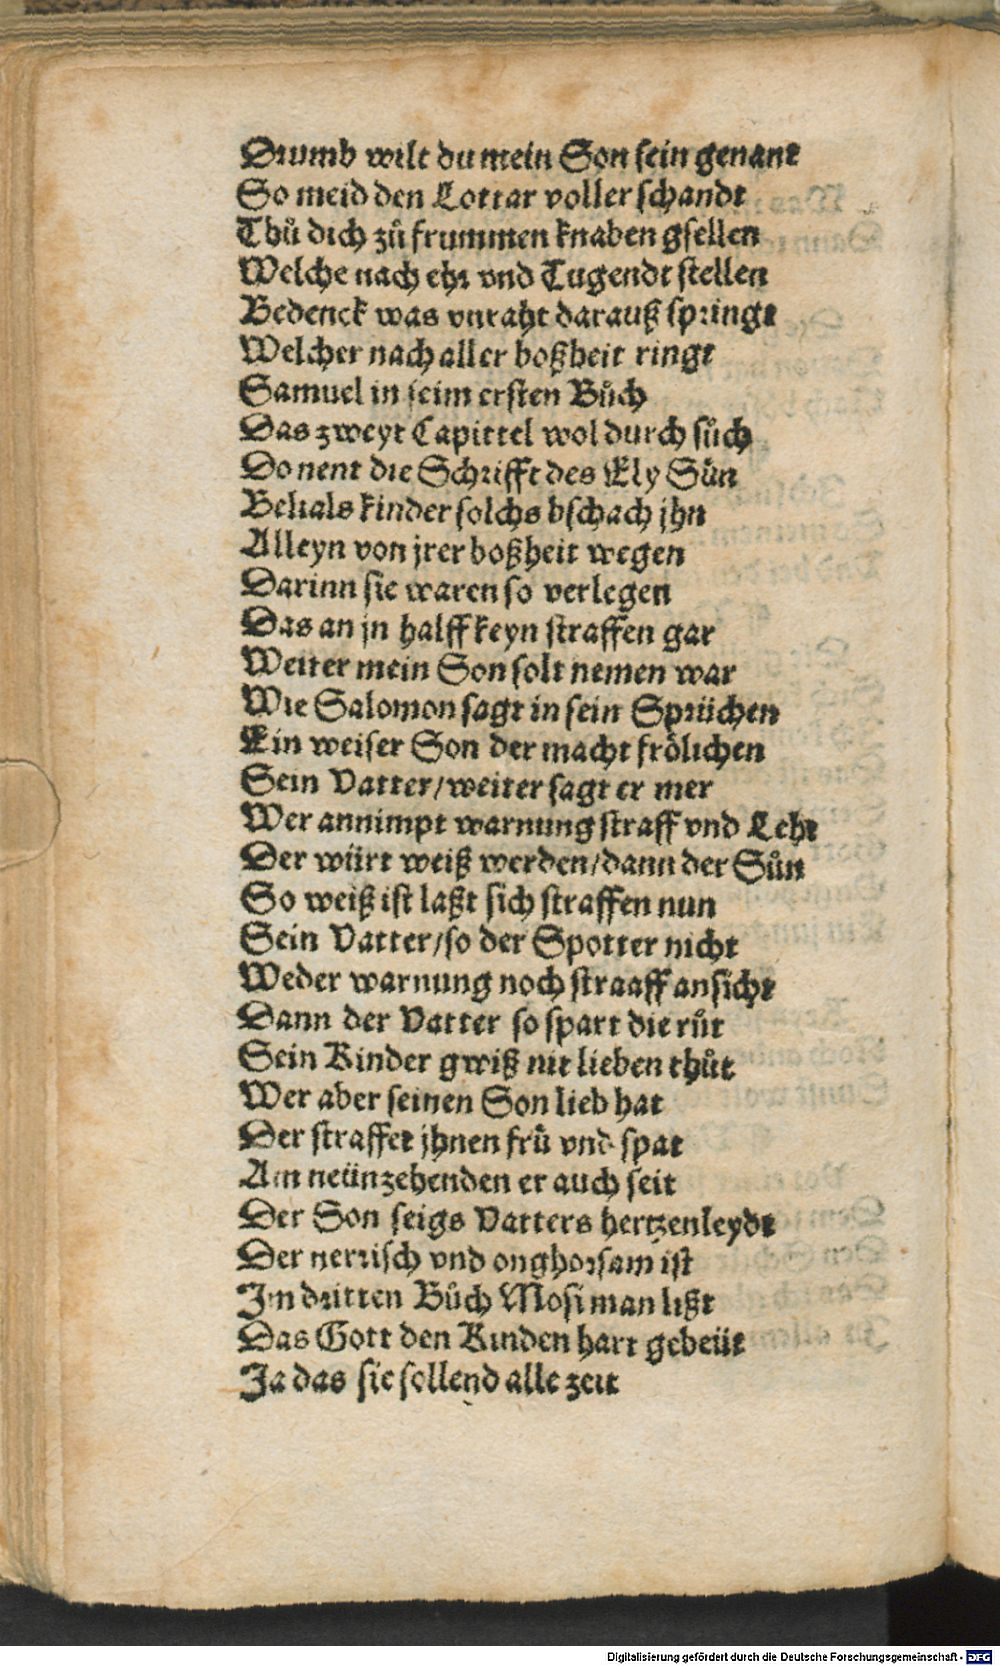 Drumb wilt du mein Son sein genant
So meid den Lottar voller schandt
Thuͦ dich zuͦ frummen knaben gsellen
Welche nach ehr vnd Tugendt stellen
Bedenck was vnraht darauß springt
Welcher nach aller boßheit ringt
Samuel in seim ersten Buͦch
Das zweyt Capittel wol durch suͦch
Do nent die Schrifft des Ely Suͤn
Belials kinder solchs bschach jhn
Alleyn von jrer boßheit wegen
Darinn sie waren so verlegen
Das an jn halff keyn straffen gar
Weiter mein Son solt nemen war
Wie Salomon sagt in sein Sprüchen
Ein weiser Son der macht froͤlichen
Sein Vatter/weiter sagt er mer
Wer annimpt warnung straff vnd Lehr
Der würt weiß werden/dann der Suͦn
So weiß ist laßt sich straffen nun
Sein Vatter/so der Spotter nicht
Weder warnung noch straaff ansicht
Dann der Vatter so spart die ruͦt
Sein Kinder gwiß nit lieben thuͦt
Wer aber seinen Son lieb hat
Der straffet jhnen fruͤ vnd spat
Am neünzehenden er auch seit
Der Son seigs Vatters hertzenleydt
Der nerrisch vnd onghorsam ist
Im dritten Buͦch Mosi man lißt
Das Gott den Kinden hart gebeüt
Ja das sie sollend alle zeit
Digitalisierung gefördert durch die Deutsche Forschungsgemeinschaft - DFG